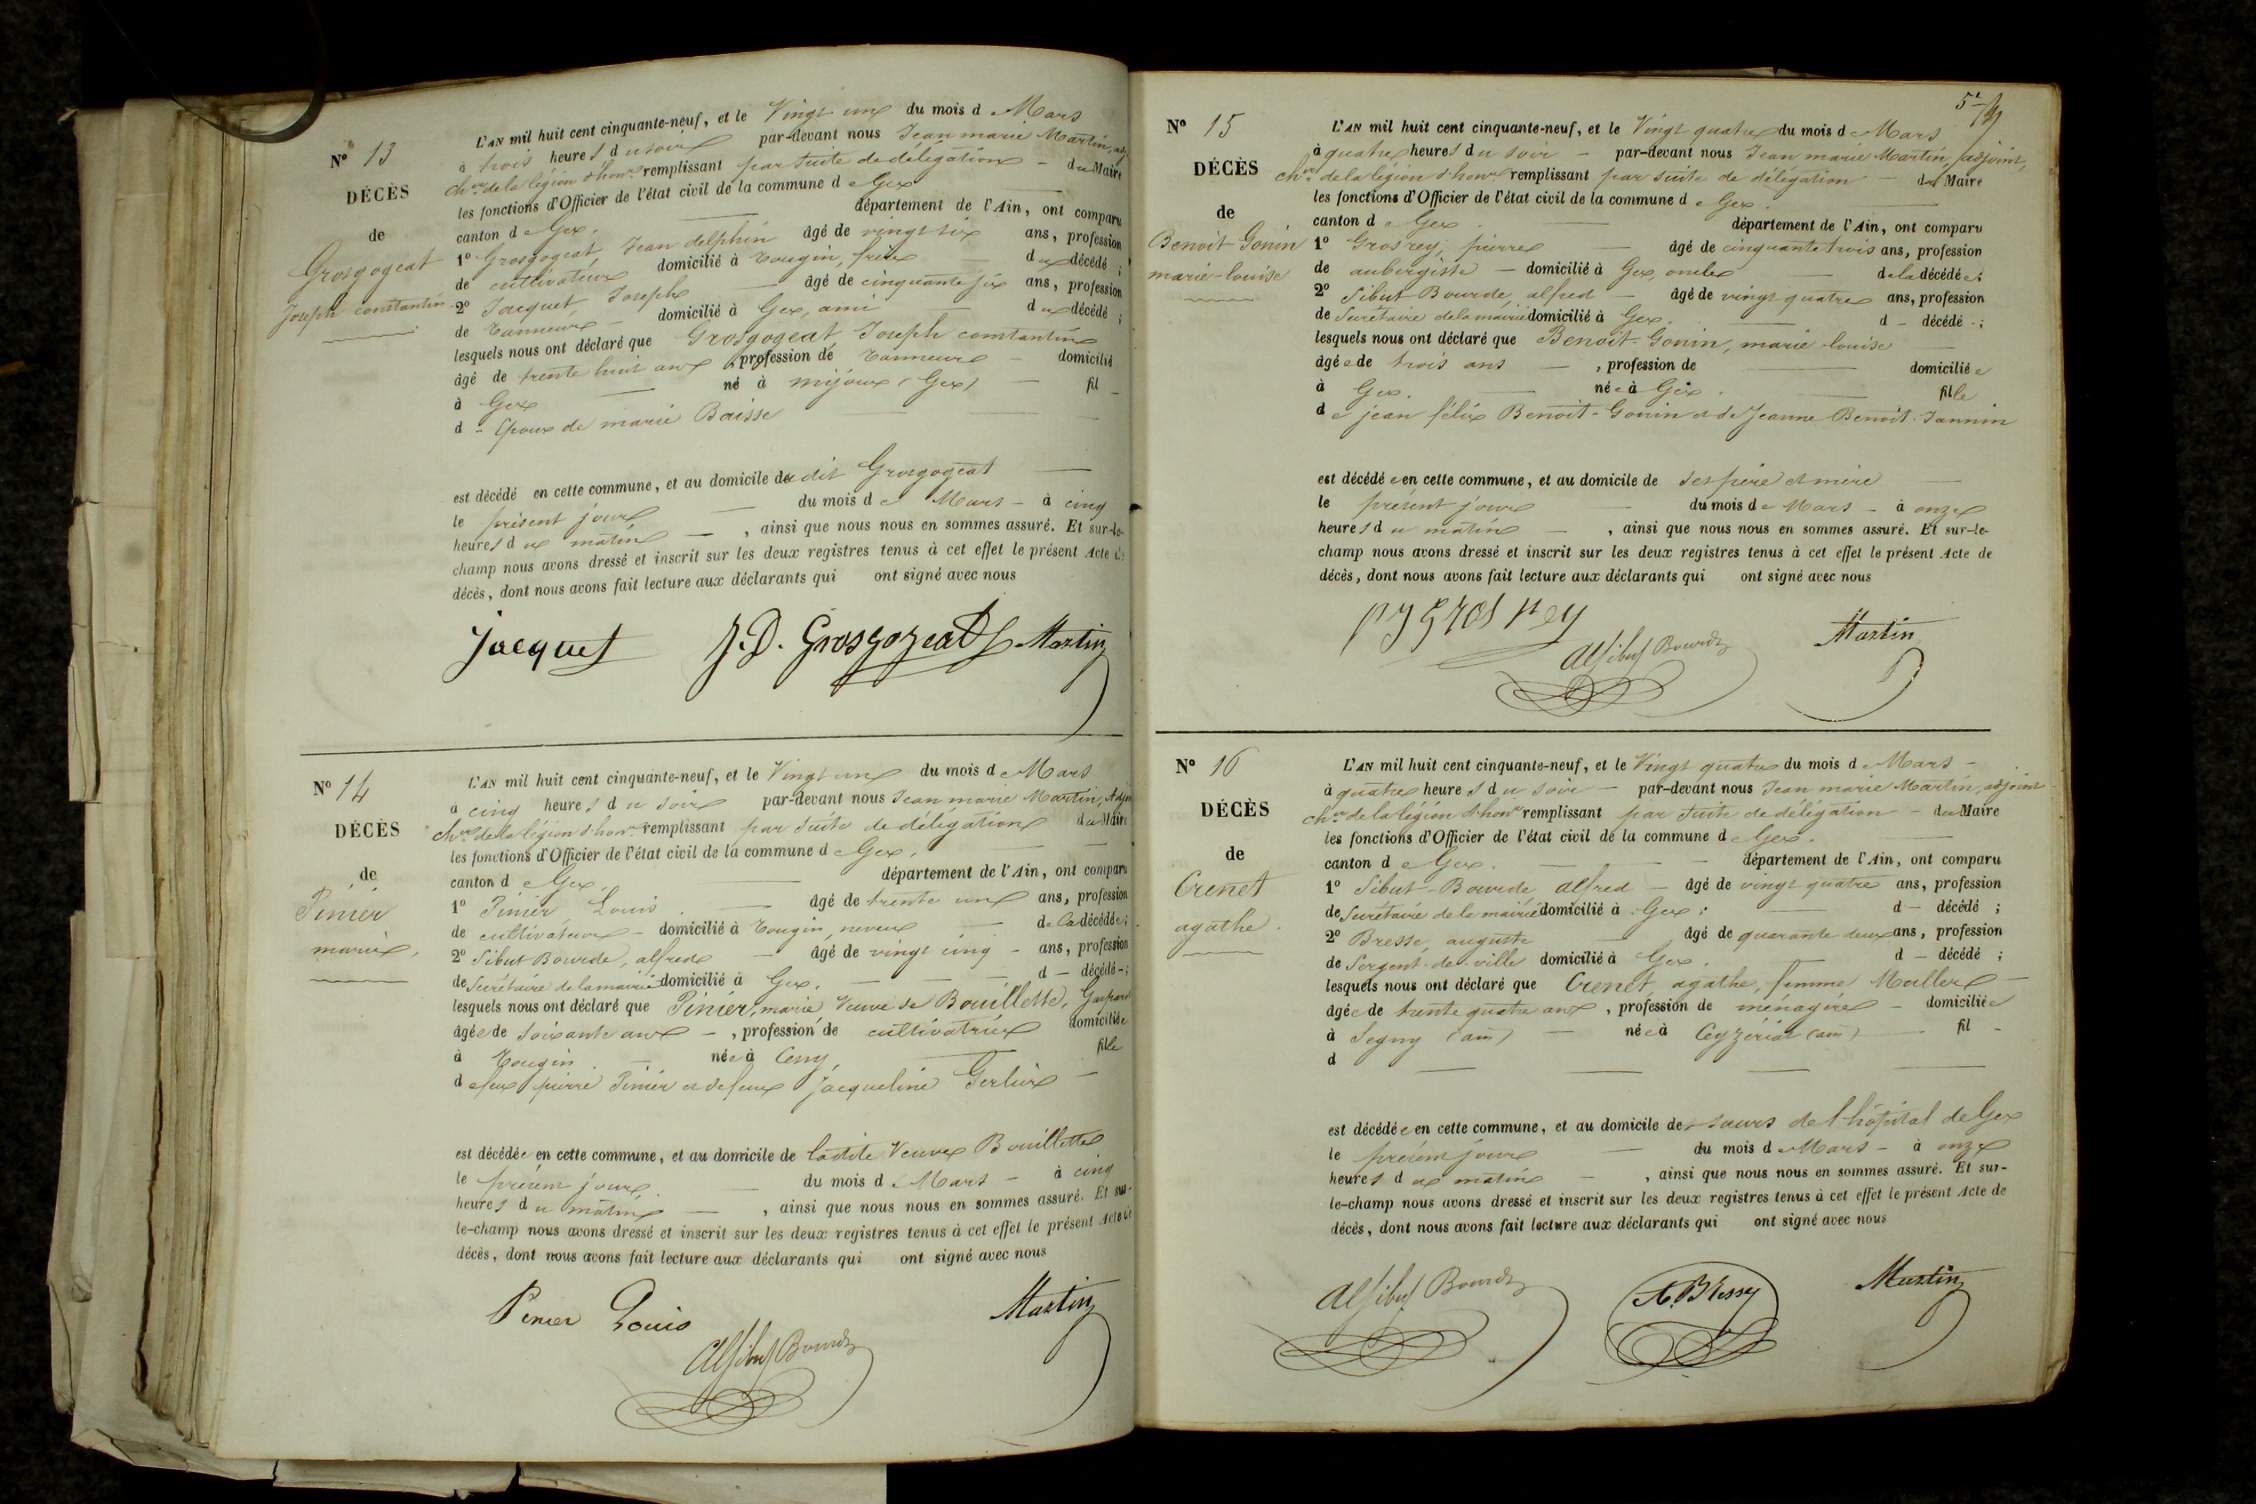 Nº 13
DÉCÈS
de
Grosgogeat
Joseph constantin
L'AN mil huit cent cinquante-neuf, et le Vingt un du mois de Mars
à trois heures du soir par-devant nous Jean marie Martin, adj
chᵉʳ de la légion d'honʳ remplissant par suite de délégation – du Maire
les fonctions d'Officier de l'état civil de la commune de Gex
canton de Gex. département de l'Ain, ont comparu
1º Grosgogeat, Jean delphin âgé de vingt six ans, profession
de cultivateur domicilié à Tougin, frère du décédé ;
2º Jacquet, Joseph âgé de cinquante six ans, profession
de Tanneur – domicilié à Gex, ami du décédé ;
lesquels nous ont déclaré que Grosgogeat, Joseph constantin
âgé de trente huit ans, profession de Tanneur – domicilié
à Gex né à mijoux (Gex) – fil –
d – Epoux de marie Baisse
est décédé en cette commune, et au domicile du dit Grosgogeat
le présent jour du mois de Mars – à cinq
heures du matin – , ainsi que nous nous en sommes assuré. Et sur-le-
champ nous avons dressé et inscrit sur les deux registres tenus à cet effet le présent Acte de
décès, dont nous avons fait lecture aux déclarants qui ont signé avec nous
Jacquet J. D. Grosgogeat Martin
Nº 14
DÉCÈS
de
Pinier
marie.
L'AN mil huit cent cinquante-neuf, et le Vingt un du mois de Mars
à cinq heures du soir par-devant nous Jean marie Martin, Adjoi
chᵉʳ de la légion d'honʳ remplissant par suite de délégation du Maire
les fonctions d'Officier de l'état civil de la commune de Gex.
canton de Gex. département de l'Ain, ont comparu
1º Pinier Louis âgé de trente un ans, profession
de cultivateur – domicilié à Tougin, neveu de la décédée ;
2º Sibut Bourde, alfred – âgé de vingt cinq – ans, profession
de Secrétaire de la mairie domicilié à Gex. d – décédé – ;
lesquels nous ont déclaré que Pinier, marie, Veuve de Bouillette, Gaspard
âgée de soixante ans – , profession de cultivatrice domiciliée
à Tougin – née à Cessy, fille
de feu pierre Pinier et de feue Jacqueline Gerlier –
est décédée en cette commune, et au domicile de ladite Veuve Bouillette
le présent jour du mois de Mars – à cinq
heures du matin – , ainsi que nous nous en sommes assuré. Et sur-
le-champ nous avons dressé et inscrit sur les deux registres tenus à cet effet le présent Acte de
décès, dont nous avons fait lecture aux déclarants qui ont signé avec nous
Pinier Louis Alf Sibut Bourde Martin
Nº 15
DÉCÈS
de
Benoit-Gonin
marie-louise
L'AN mil huit cent cinquante-neuf, et le Vingt quatre du mois de Mars
à quatre heures du soir – par-devant nous Jean marie Martin, adjoint,
chᵉʳ de la légion d'honʳ remplissant par suite de délégation – du Maire
les fonctions d'Officier de l'état civil de la commune de Gex.
canton de Gex département de l'Ain, ont comparu
1º Grosrey, pierre – âgé de cinquante trois ans, profession
de aubergiste – domicilié à Gex, oncle de la décédée ;
2º Sibut-Bourde, alfred – âgé de vingt quatre ans, profession
de Secrétaire de la mairie domicilié à Gex. d – décédé – ;
lesquels nous ont déclaré que Benoit-Gonin, marie-louise
âgée de trois ans – , profession de domiciliée
à Gex. née à Gex. fille
de jean félix Benoit-Gonin et de Jeanne Benoit-Jannin
est décédée en cette commune, et au domicile de ses père et mère
le présent jour du mois de Mars – à onze
heures du matin – , ainsi que nous nous en sommes assuré. Et sur-le-
champ nous avons dressé et inscrit sur les deux registres tenus à cet effet le présent Acte de
décès, dont nous avons fait lecture aux déclarants qui ont signé avec nous
Grosrey Alf Sibut Bourde Martin
Nº 16
DÉCÈS
de
Crenet
agathe.
L'AN mil huit cent cinquante-neuf, et le Vingt quatre du mois de Mars –
à quatre heures du soir – par-devant nous Jean marie Martin, adjoint
chᵉʳ de la légion d'honʳ remplissant par suite de délégation – du Maire
les fonctions d'Officier de l'état civil de la commune de Gex.
canton de Gex. département de l'Ain, ont comparu
1º Sibut-Bourde alfred – âgé de vingt quatre ans, profession
de Secrétaire de la mairie domicilié à Gex ; d – décédé ;
2º Bresse, auguste âgé de quarante deux ans, profession
de Sergent-de-ville domicilié à Gex. d – décédé ;
lesquels nous ont déclaré que Crenet, agathe, femme Muller –
âgée de trente quatre ans, profession de ménagère – domiciliée
à Segny (ain) – née à Ceyzériat (ain) – fil –
d
est décédée en cette commune, et au domicile des sœurs de l'hôpital de Gex
le présent jour du mois de Mars – à onze
heures du matin – , ainsi que nous nous en sommes assuré. Et sur-
le-champ nous avons dressé et inscrit sur les deux registres tenus à cet effet le présent Acte de
décès, dont nous avons fait lecture aux déclarants qui ont signé avec nous
Alf Sibut Bourde A. Bresse Martin